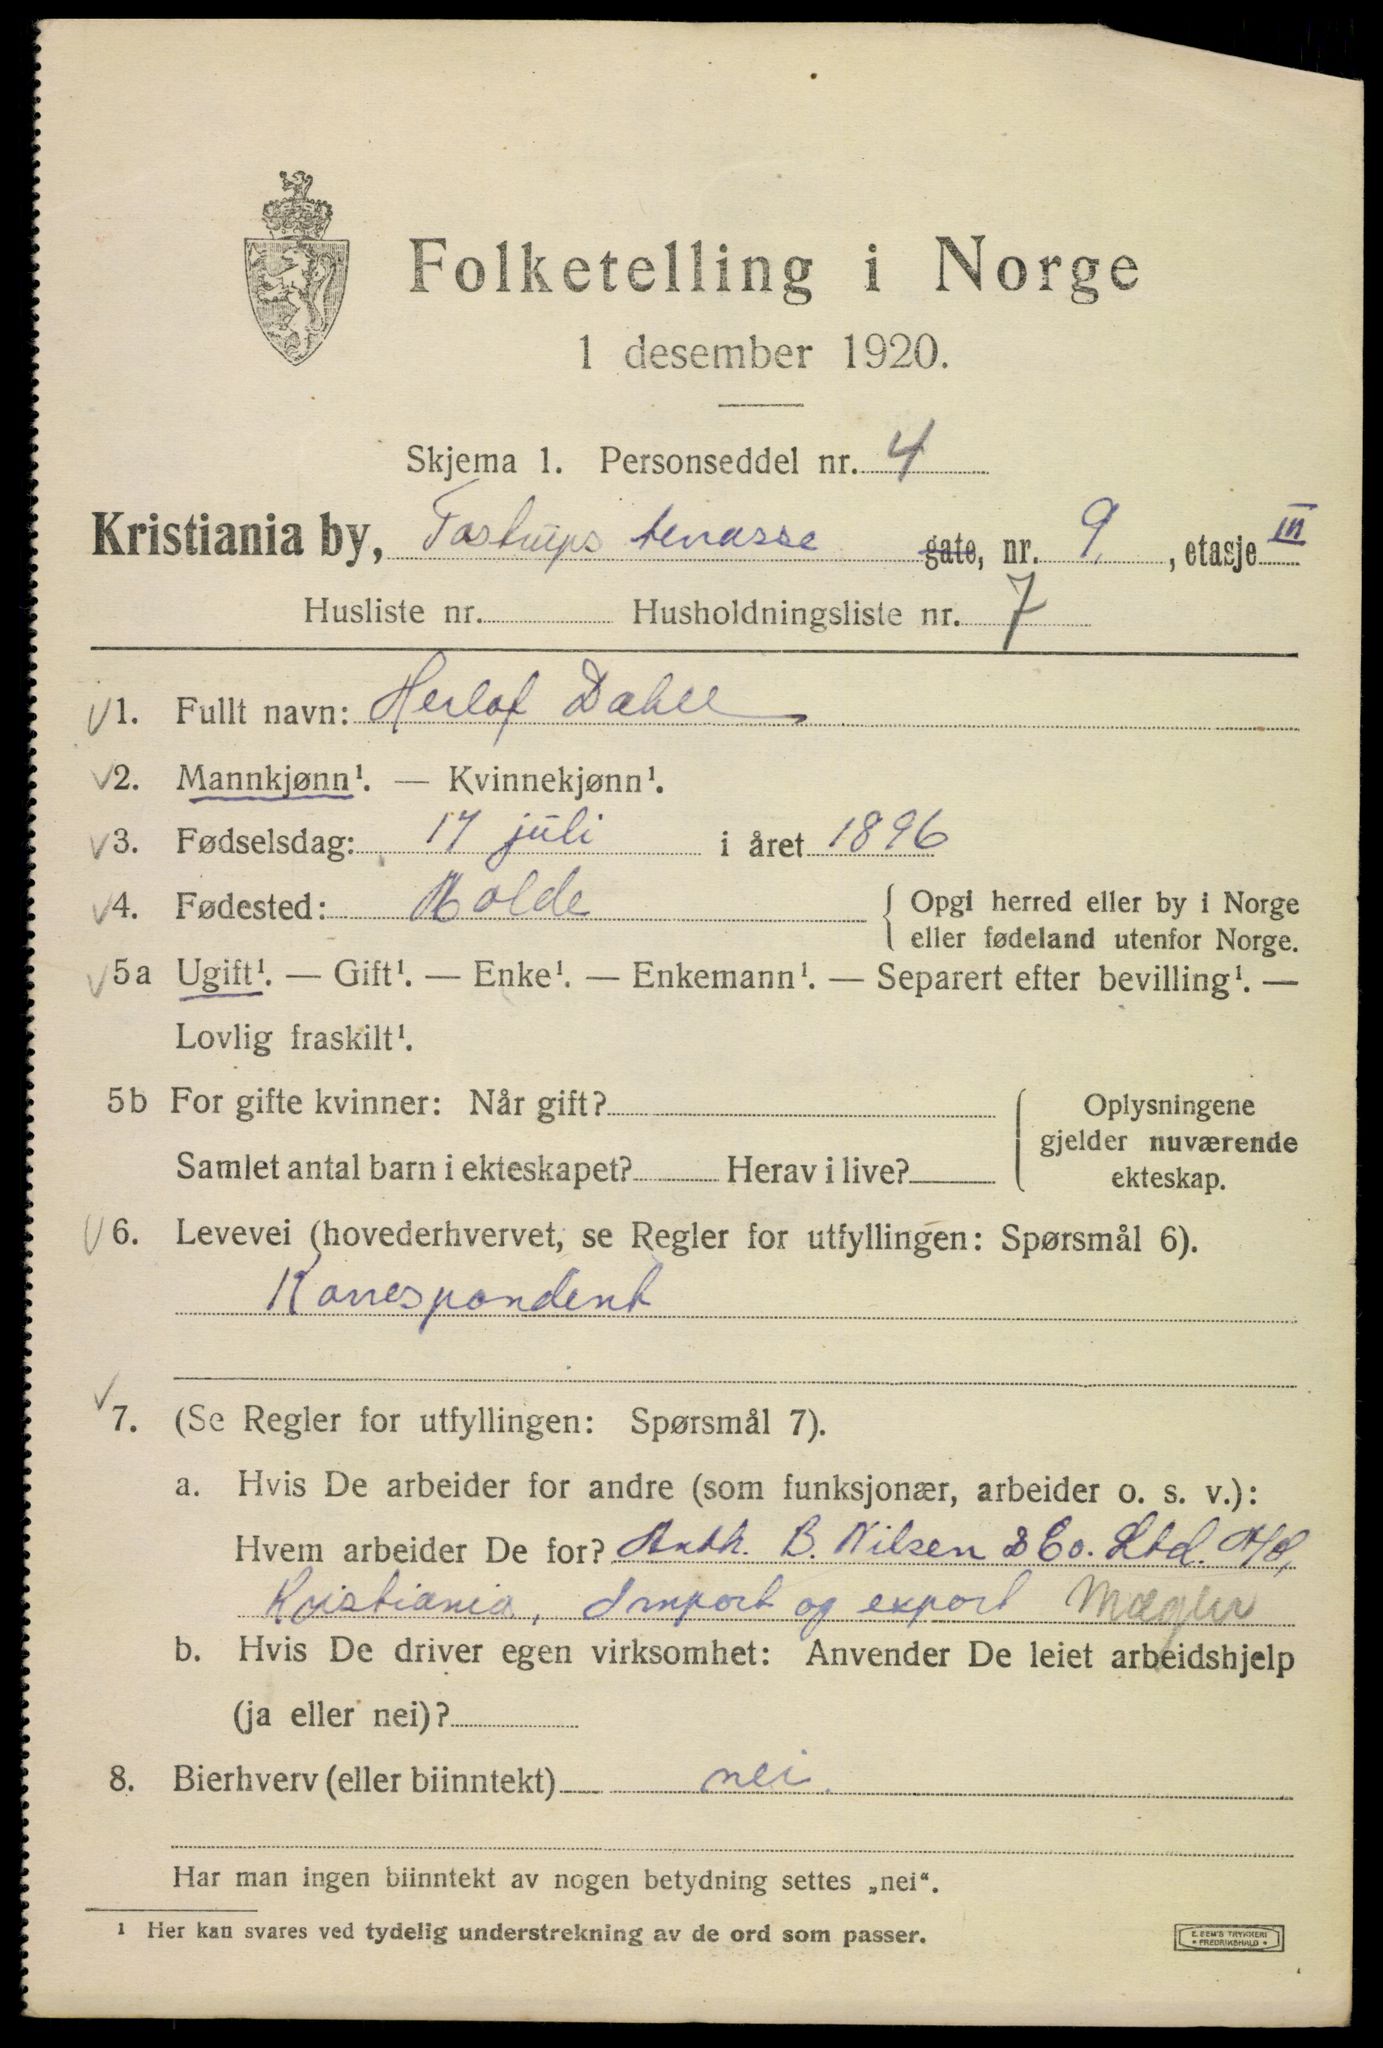 Folketelling i Norge
1 desember 1920.
Skjema 1. Personseddel nr. 4
Kristiania by, Tostrups terrasse gate, nr. 9, etasje III
Husliste nr. Husholdningsliste nr. 7
1. Fullt navn: Herlof Dahll
2. Mannkjønn¹. — Kvinnekjønn¹.
3. Fødselsdag: 17 juli i året 1896
4. Fødested: Molde { Opgi herred eller by i Norge
eller fødeland utenfor Norge.
5a Ugift¹. — Gift¹. — Enke¹. — Enkemann¹. — Separert efter bevilling¹. —
Lovlig fraskilt¹.
5b For gifte kvinner: Når gift? Oplysningene
gjelder nuværende
Samlet antal barn i ekteskapet? Herav i live? ekteskap.
6. Levevei (hovederhvervet, se Regler for utfyllingen: Spørsmål 6).
Korrespondent
7. (Se Regler for utfyllingen: Spørsmål 7).
a. Hvis De arbeider for andre (som funksjonær, arbeider o. s. v.):
Hvem arbeider De for? Anth. B. Nilsen & Co. Ltd. A/S,
Kristiania, Import og export Mægler
b. Hvis De driver egen virksomhet: Anvender De leiet arbeidshjelp
(ja eller nei)?
8. Bierhverv (eller biinntekt) nei.
Har man ingen biinntekt av nogen betydning settes „nei“.
¹ Her kan svares ved tydelig understrekning av de ord som passer.
E. SEM'S TRYKKERI
• FREDRIKSHALD •